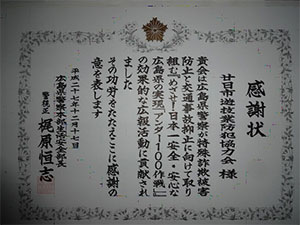 感謝状
廿日市遊技業防犯協力会 様
貴会は広島県警察が特殊詐欺被害
防止と交通事故抑止に向けて取り
組む「めざせ!日本一安全・安心な
広島県の実現」「アンダー100作戦」
の効果的な広報活動に貢献され
ました
その功労をたたえここに感謝の
意を表します
平成二十七年十二月十七日
広島県警察本部生活安全部長
警視正 梶原恒志